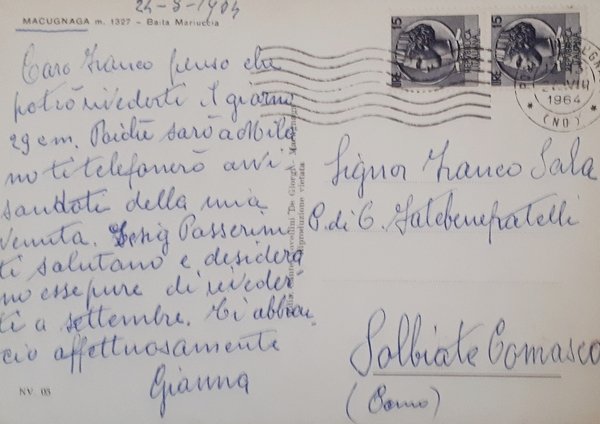 24-8-1964
MACUGNAGA m. 1327 - Baita Mariuccia
Caro Franco penso che
potrò rivederti il giorno
29 c.m. Poiché sarò a Mila
no ti telefonerò avvi
sandoti della mia
venuta. Le sig Passerini
ti salutano e desidera
no esse pure di riveder
ti a settembre. Ti abbrac
cio affettuosamente
Gianna
NV 05
Riproduzione vietata
15
LIRE
15
LIRE
1964
(NO)
Signor Franco Sala
P. di C. Fatebenefratelli
Solbiate Comasco
(Como)